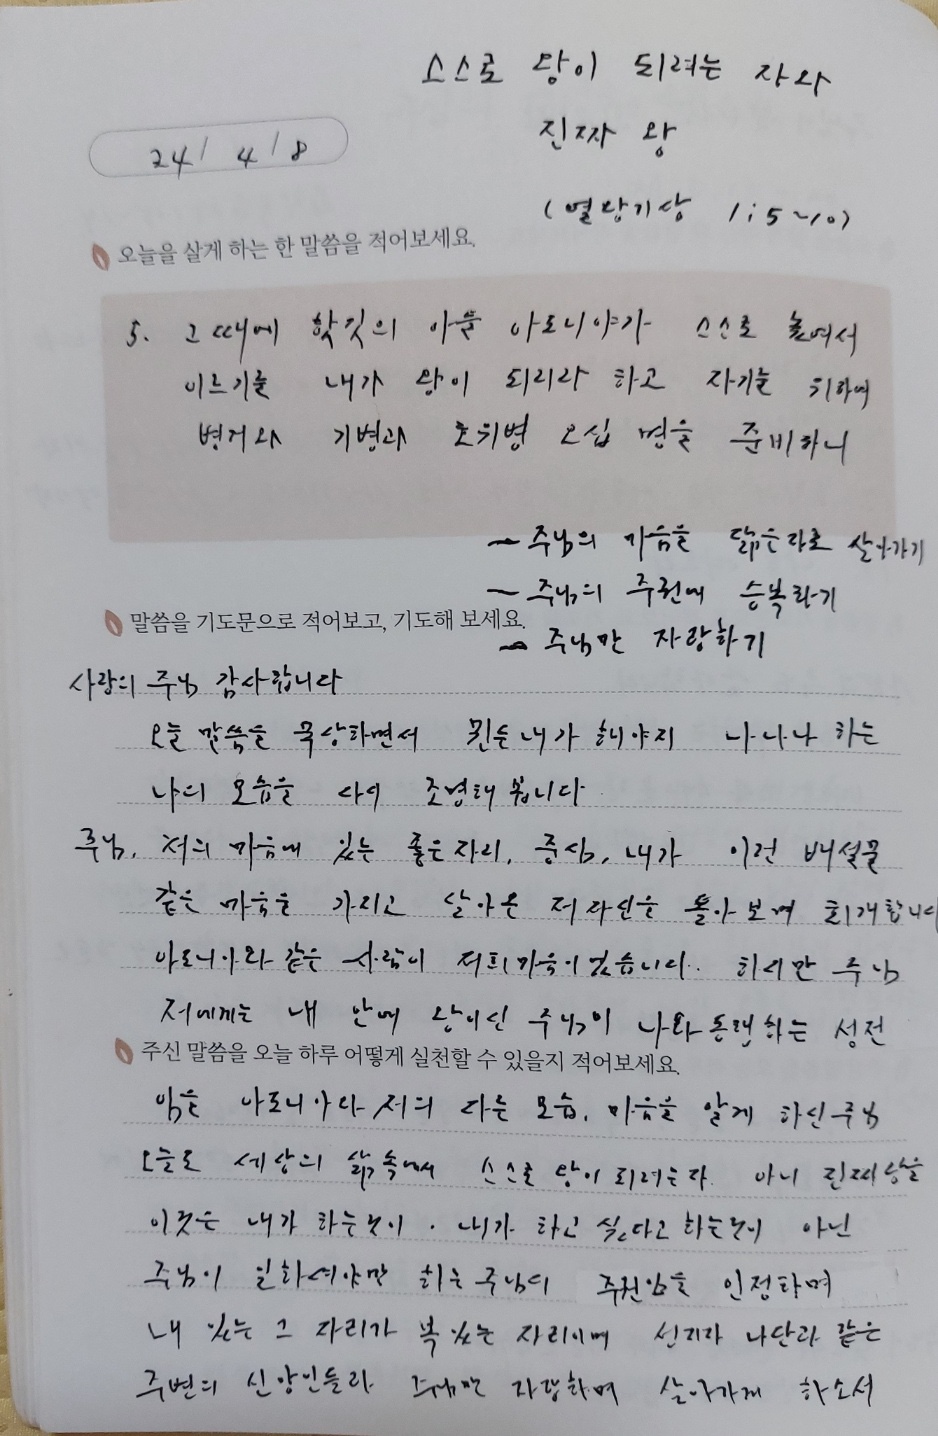 스스로 왕이 되려는 자와
진짜 왕
24/ 4/8
(열왕기상 1:5~10)
오늘을 살게 하는 한 말씀을 적어보세요.
5. 그 때에 학깃의 아들 아도니야가 스스로 높여서
이르기를 내가 왕이 되리라 하고 자기를 위하여
병거와 기병과 호위병 오십 명을 준비하니
- 주님의 마음을 닮은자로 살아가기
- 주님의 주권에 승복하기
말씀을 기도문으로 적어보고, 기도해 보세요.
- 주님만 자랑하기
사랑의 주님 감사합니다
오늘 말씀을 묵상하면서 뭐든 내가 해야지 나나나 하는
나의 모습을 다시 조명해 봅니다
주님, 저의 마음에 있는 좋은자리, 중심, 내가 이런 배설물
같은 마음을 가지고 살아온 저 자신을 돌아보며 회개합니다
아도니야와 같은 사람이 저희 마음이었습니다. 하지만 주님
저에게는 내 안에 왕이신 주님이 나와 동행하는 성전
주신 말씀을 오늘 하루 어떻게 실천할 수 있을지 적어보세요.
임을 아도니아와 저의 다른 모습, 마음을 알게 하신 주님
오늘도 세상의 삶 속에서 스스로 왕이 되려는자 아니 진짜 왕을
이것은 내가 하는것이. 내가 하고 싶다고 하는것이 아닌
주님이 일하셔야만 하는 주님의 주권임을 인정하며
내 있는 그 자리가 복 있는 자리이며 선지자 나단과 같은
주변의 신앙인들과 자랑하며 살아가게 하소서